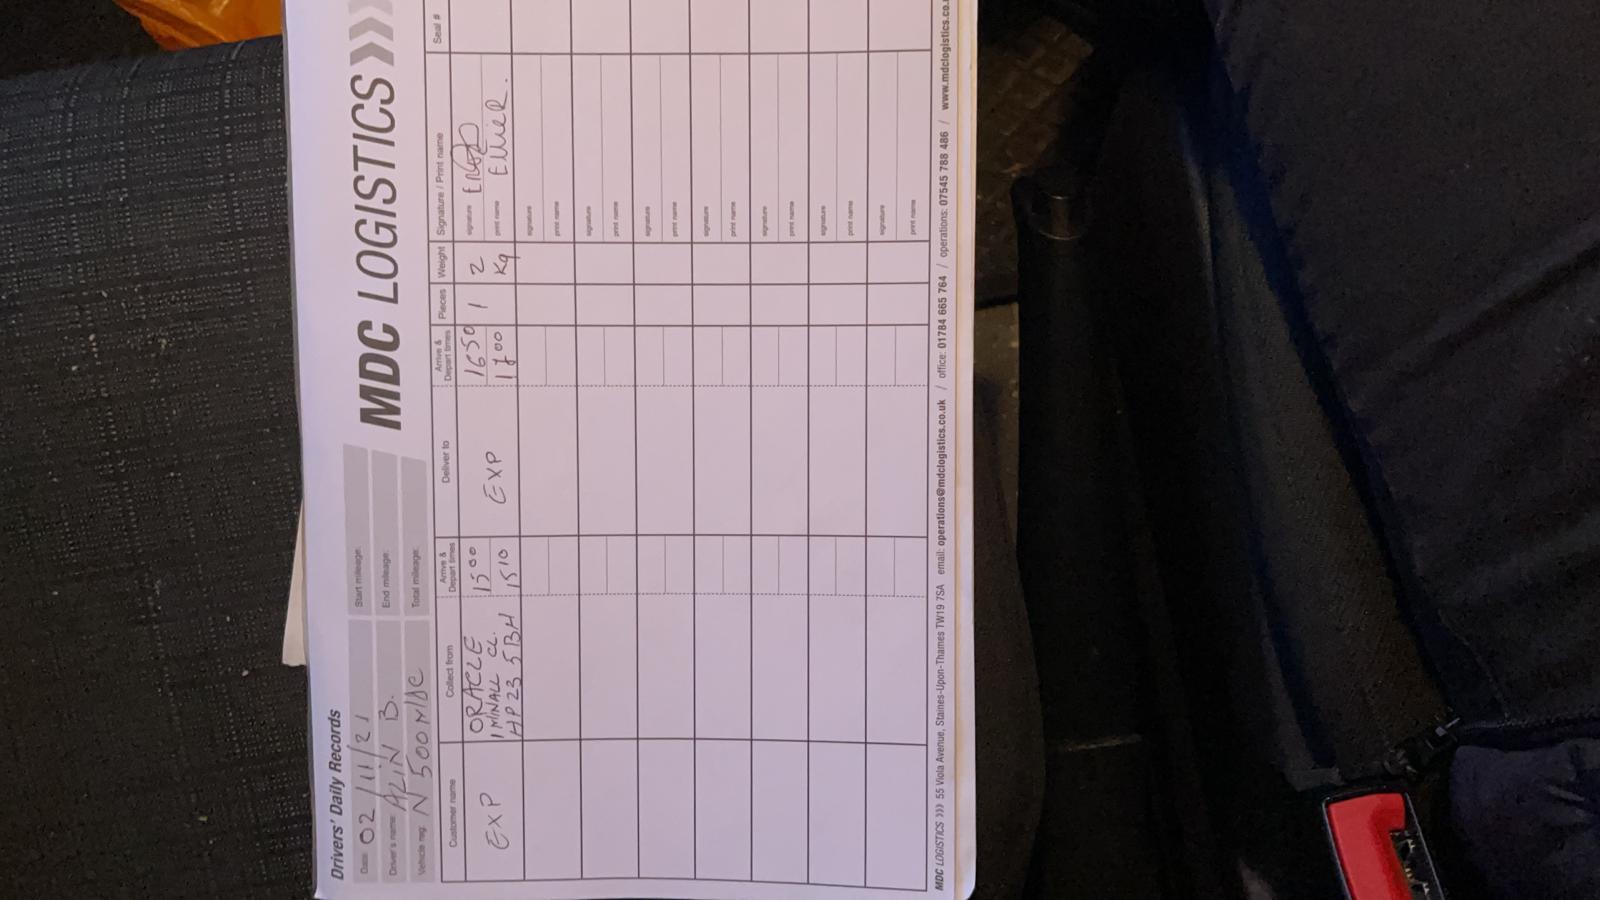 Drivers' Daily Records
MDC LOGISTICS
Date: 02/11/21
Start mileage:
Driver's name: ALIN B.
End mileage:
Vehicle reg: N500MDC
Total mileage:
Customer name
Collect from
Arrive & Depart times
Deliver to
Arrive & Depart times
Pieces
Weight
Signature / Print name
Seal #
EXP
ORACLE
1 MINALL CL.
HP23 5BH
1500
1510
EXP
1650
1700
1
2
Kg
signature
print name Ellie R.
signature
print name
signature
print name
signature
print name
signature
print name
signature
print name
signature
print name
signature
print name
MDC LOGISTICS 55 Viola Avenue, Staines-Upon-Thames TW19 7SA email: operations@mdclogistics.co.uk / office: 01784 665 764 / operations: 07545 788 486 / www.mdclogistics.co.u